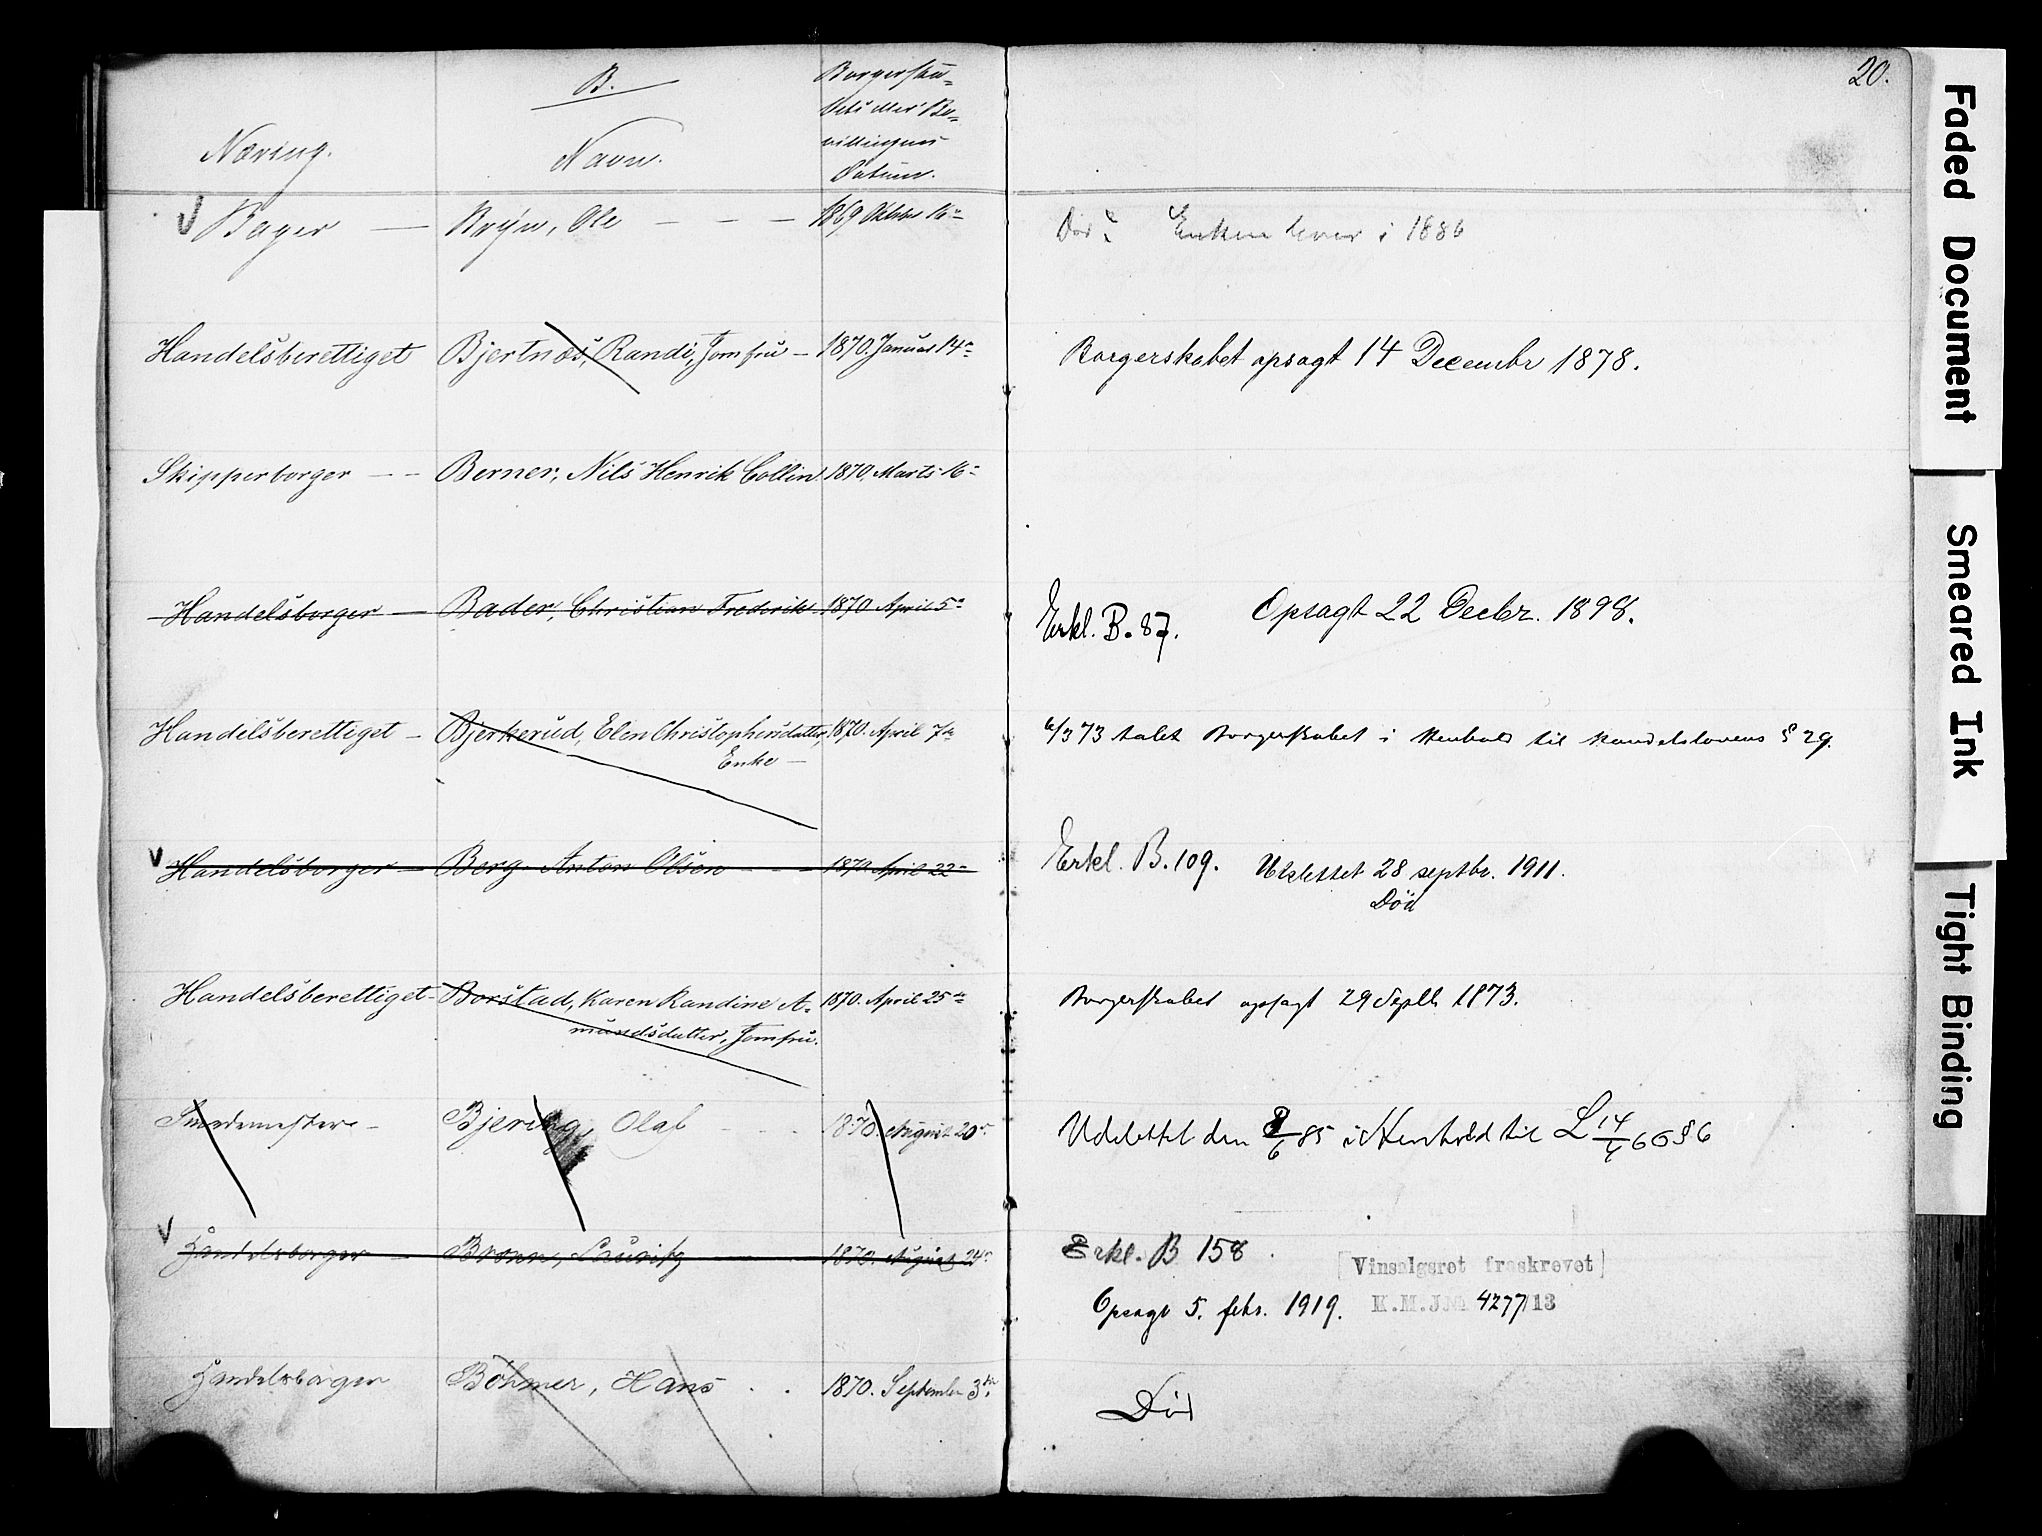 20.
B.
Næring.
Navn.
Borgerska-
bets eller Be-
villingens
Datum.
V Bager — Bryn, Ole - - - 1869 Oktober 16de
Død? Enken lever i 1886
Handelsberettiget Bjertnæs, Randi, Jomfru - 1870. Januar 14de
Borgerskabet opsagt 14 Decembr 1878.
Skipperborger - - Berner, Nils Henrik Collin 1870. Marts 16de
Handelsborger — Bader, Christian Frederik 1870 April 5te
Erkl. B. 87. Opsagt 22 Decbr. 1898.
Handelsberettiget - Bjerkerud, Elen Christophersdatter, 1870. April 7de
Enke —
6/3 73 tabt Borgerskabet i Henhold til Handelslovens § 29.
V Handelsborger — Berg Anton Olsen - - - 1870 April 22de
Erkl. B. 109. Utslettet 28 septbr. 1911.
Død
Handelsberettiget - Borstad, Karen Randine A- 1870. April 25de
mundsdatter, Jomfru.
Borgerskabet opsagt 29 Septb 1873.
Smedemester - Bjering, Olaf - - - 1870. August 20de
Udslettet den 8/6 85 i Henhold til L 14/4 66 § 6
V Handelsborger — Bronn, Lauritz 1870. August 24de
Erkl. B 158.
[Vinsalgsret fraskrevet]
Opsagt 5. febr. 1919.
M.M.J№ 4277/13
Handelsborger Böhmer, Hans . . 1870. September 3die
Død
Faded Document
Smeared Ink
Tight Binding